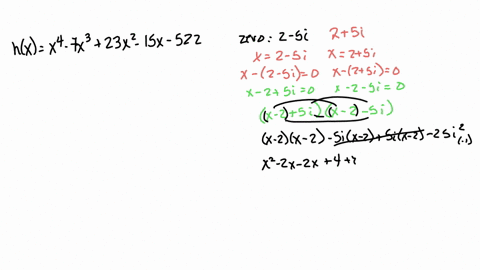 h(x) = x⁴ - 7x³ + 23x² - 15x - 522
zero: 2-5i 2+5i
x = 2-5i x = 2+5i
x-(2-5i) = 0 x-(2+5i) = 0
x-2+5i = 0 x-2-5i = 0
(x-2)+5i)((x-2)-5i)
(x-2)(x-2) - 5i(x-2) + 5i(x-2) - 25i²
(-1)
x² - 2x - 2x + 4 +